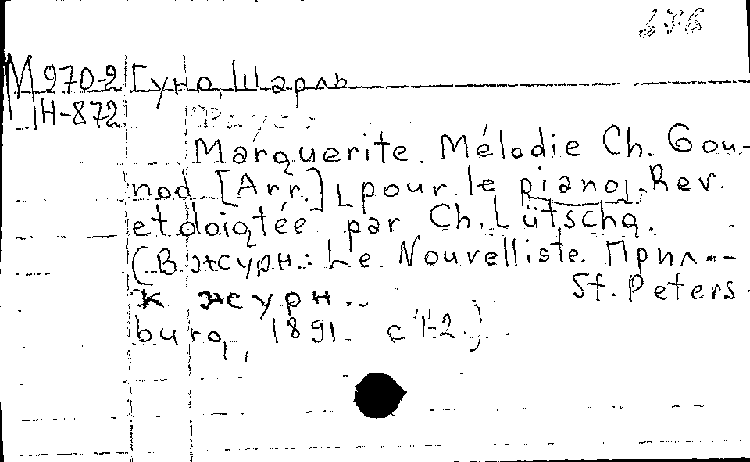 М 970-2 Гуно, Шарль
Н-872
Marguerite. Mélodie Ch. Gou-
nod [Arr.] pour le piano. Rev.
et doigtée par Ch. Lütschg.
(В журн.: Le Nouvelliste. Прил...
к журн... St. Peters
burg, 1891. с 1-2.)